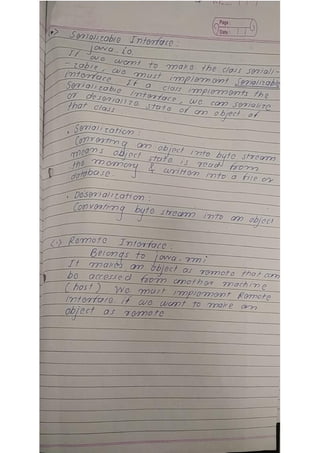 Page :
Date :
Serializable Interface :
java.io
If we want to make the class seriali-
-zable, we must implement Serializable
interface. If a class implements the
Serializable interface, we can serialize
or deserialize state of an object of
that class
• Serialization :
Converting an object into byte stream
means object state is read from
the memory & written into a file or
database.
• Deserialization :
Converting byte stream into an object
Remote Interface :
Belongs to java.rmi
It makes an object as remote that can
be accessed from another machine
(host) We must implement Remote
Interface if we want to make an
object as remote